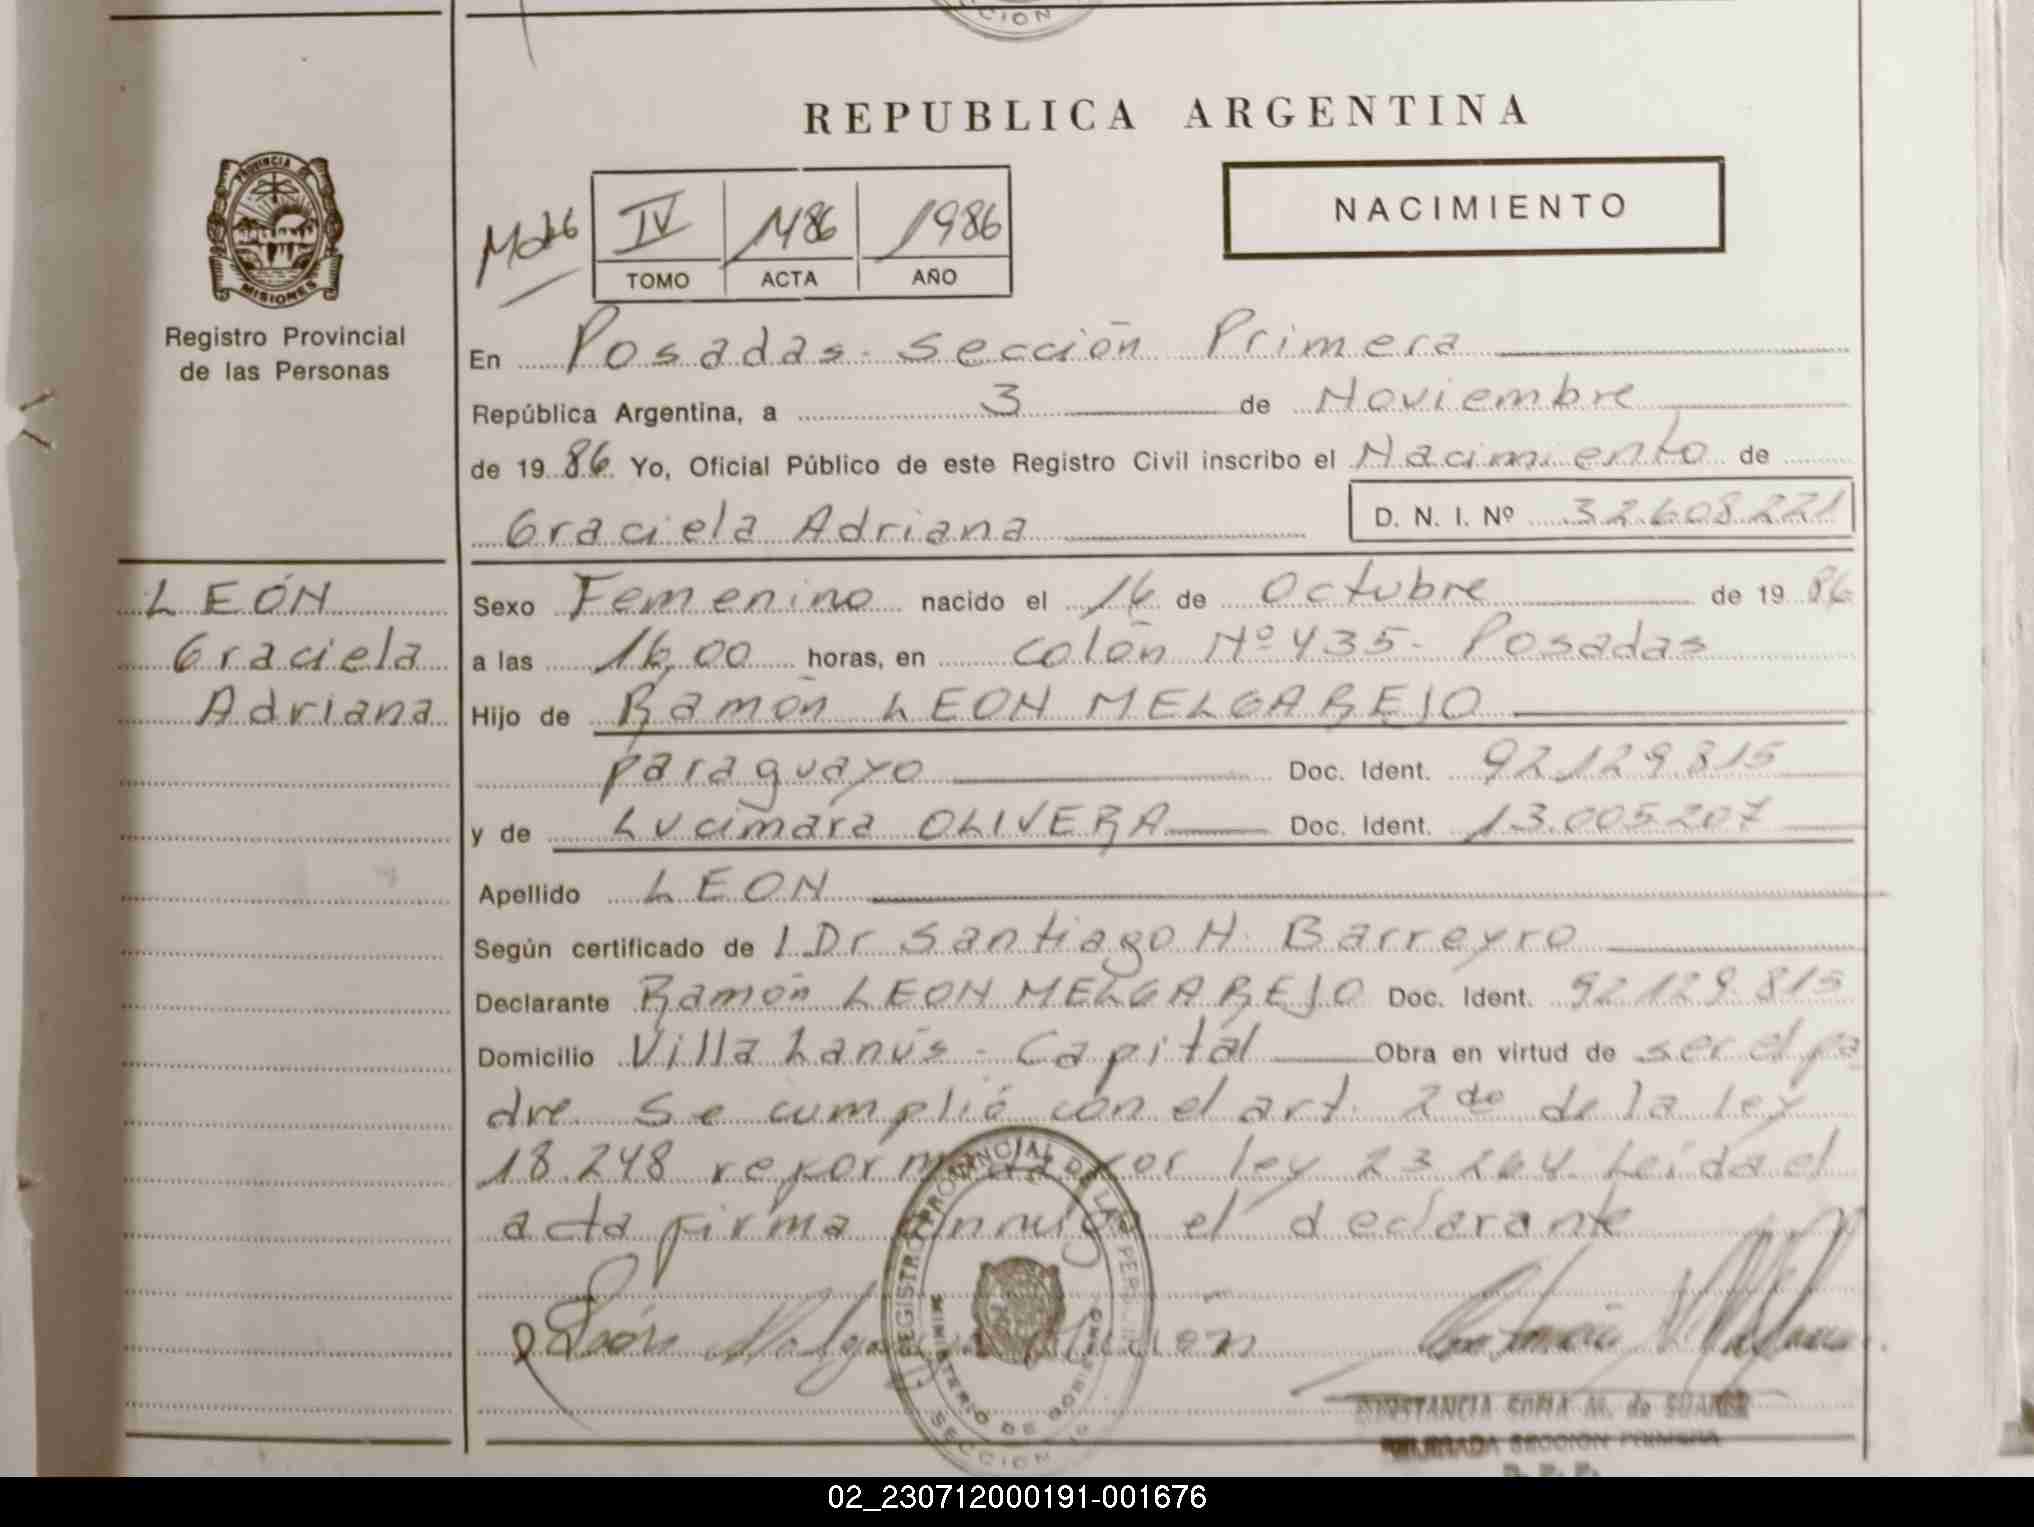 CCION
REPUBLICA ARGENTINA
PROVINCIA DE
MISIONES
Registro Provincial
de las Personas
IV 1486 1986
TOMO ACTA AÑO
NACIMIENTO
En Posadas - Sección Primera
República Argentina, a 3 de Noviembre
de 1986 Yo, Oficial Público de este Registro Civil inscribo el Nacimiento de
Graciela Adriana D. N. I. Nº 32.608.221
LEÓN
Graciela
Adriana
Sexo Femenino nacido el 16 de Octubre de 1986
a las 16,00 horas, en Colón Nº 435 - Posadas
Hijo de Ramón LEON MELGAREJO
paraguayo Doc. Ident. 92.129.815
y de Lucimara OLIVERA Doc. Ident. 13.005.207
Apellido LEON
Según certificado de l Dr Santiago H. Barreyro
Declarante Ramón LEON MELGAREJO Doc. Ident. 92.129.815
Domicilio Villa Lanús - Capital Obra en virtud de ser el pa
dre. Se cumplió con el art. 2do de la ley
18.248 reformada por ley 23.264. Leída el
acta firma conmigo el declarante
REGISTRO PROVINCIAL DE LAS PERSONAS
MINISTERIO DE GOBIERNO
SECCION 1a
CONSTANCIA SOFIA M. de SUAREZ
DELEGADA SECCION PRIMERA
02_230712000191-001676